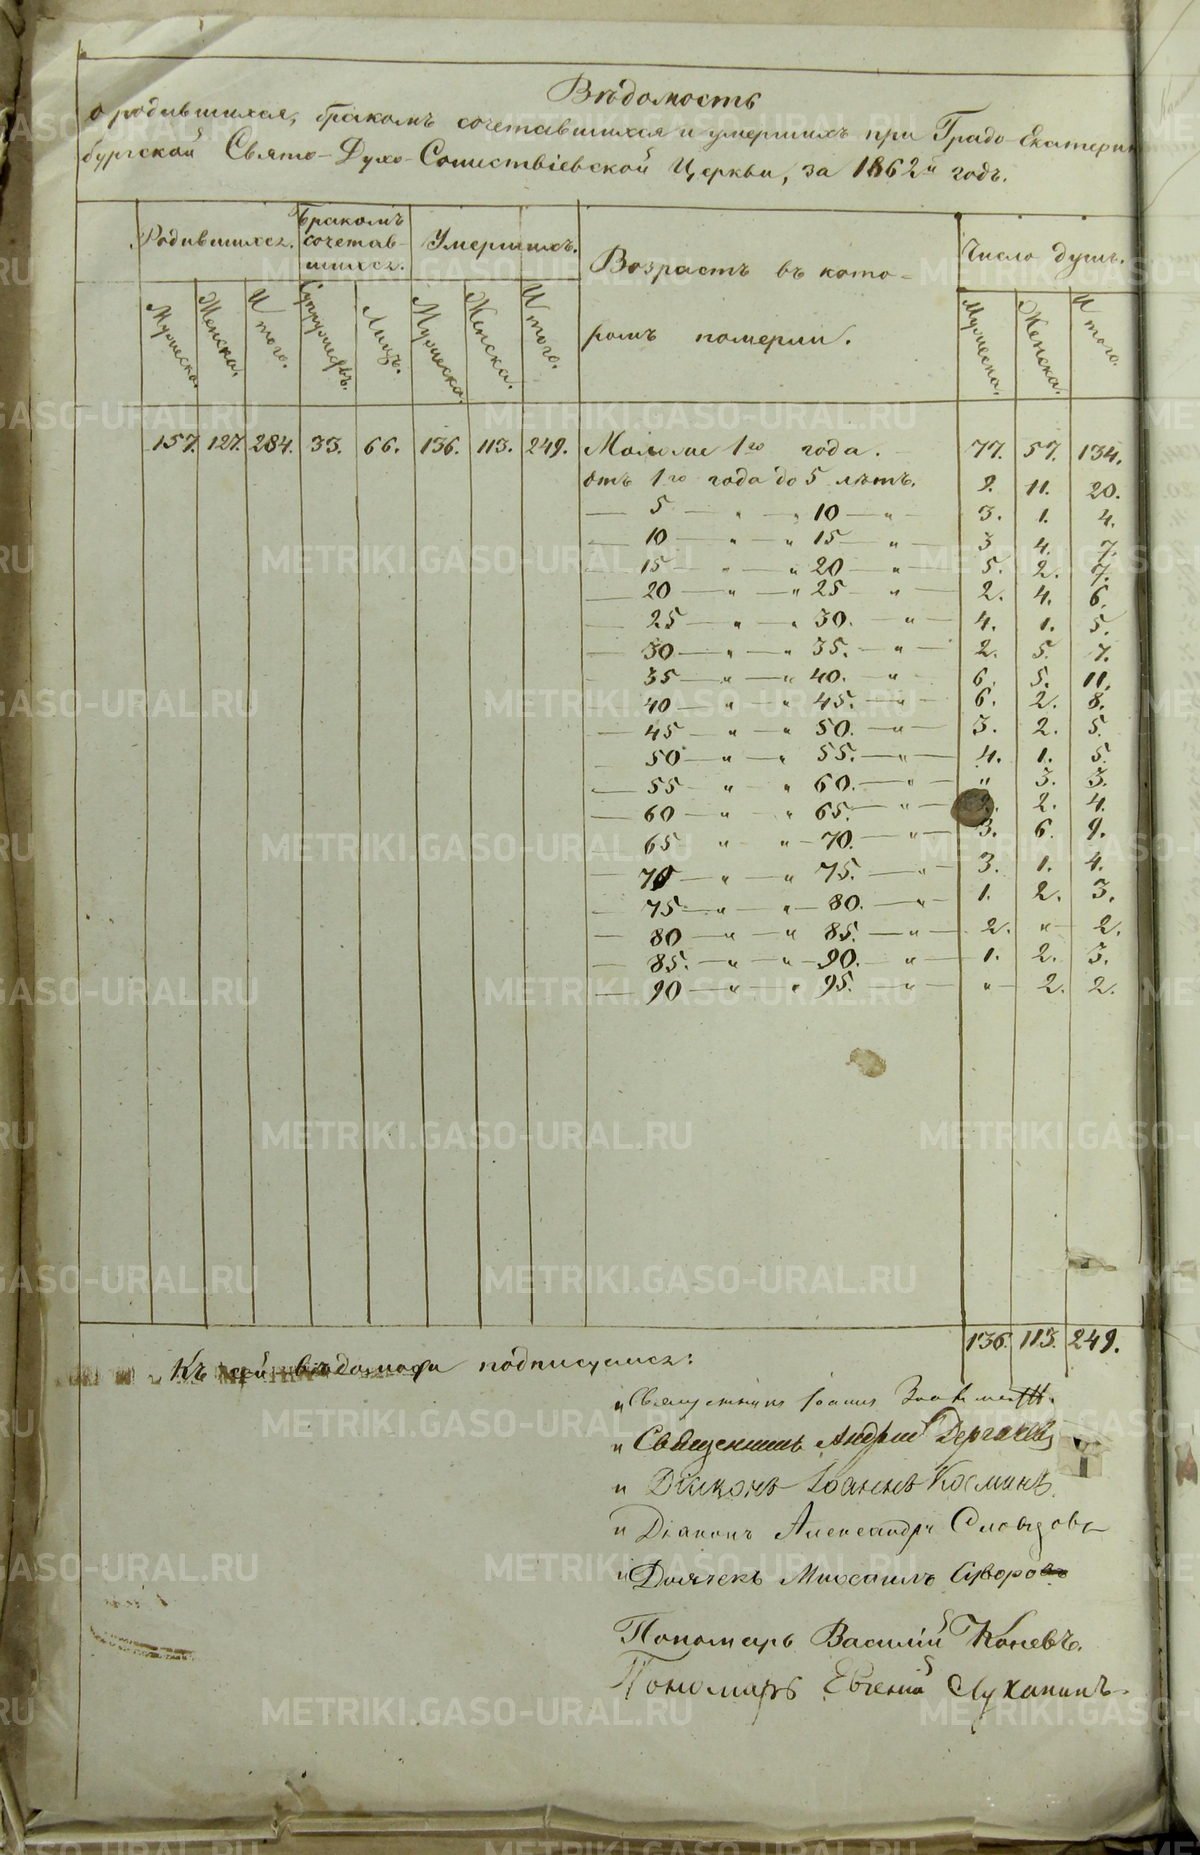 Вѣдомость
о родившихся, бракомъ сочетавшихся и умершихъ при Градо-Екатерин
бургской Свято-Духо-Сошествіевской Церкви, за 1862й годъ.
Родившихся. Бракомъ сочетав- шихся. Умершихъ. Возрастъ въ кото- ромъ померли. Число душъ.
Мужеска. Женска. Итого. Супружествъ. Лицъ. Мужеска. Женска. Итого. Мужеска. Женска. Итого.
157. 127. 284. 33. 66. 136. 113. 249. Моложе 1го года. 77. 57. 134.
отъ 1го года до 5 лѣтъ. 9. 11. 20.
— 5 — " — " 10 — " 3. 1. 4.
— 10 — " — " 15 — " 3 4. 7.
— 15 — " — " 20 — " — 5. 2. 7.
— 20 — " — " 25 — " — 2. 4. 6.
— 25 — " — " 30. — " — 4. 1. 5.
— 30 — " — " 35. — " — 2. 5. 7.
— 35 — " — " 40. — " — 6. 5. 11.
— 40 — " — " 45. — " — 6. 2. 8.
— 45 — " — " 50. — " — 3. 2. 5.
— 50 — " — " 55. — " — 4. 1. 5.
— 55 — " — " 60. — " — " 3. 3.
— 60 — " — " 65. — " — 2. 2. 4.
— 65 — " — " 70. — " — 3. 6. 9.
— 70 — " — " 75. — " — 3. 1. 4.
— 75 — " — " — 80. — " — 1. 2. 3.
— 80 — " — " 85. — " — 2. " 2.
— 85. — " — " 90. — " — 1. 2. 3.
— 90 — " — " 95. — " — " 2. 2.
136. 113. 249.
Къ сей вѣдомости подписуемся:
" Священникъ Іоаннъ
" Священникъ Андрей Дергачевъ
" Діаконъ Іоаннъ Косминъ.
" Діаконъ Александръ Словцовъ
" Дьячекъ Михаилъ Суворовъ
Пономарь Василій Коневъ.
Пономарь Евгеній Луканинъ.
METRIKI.GASO-URAL.RU